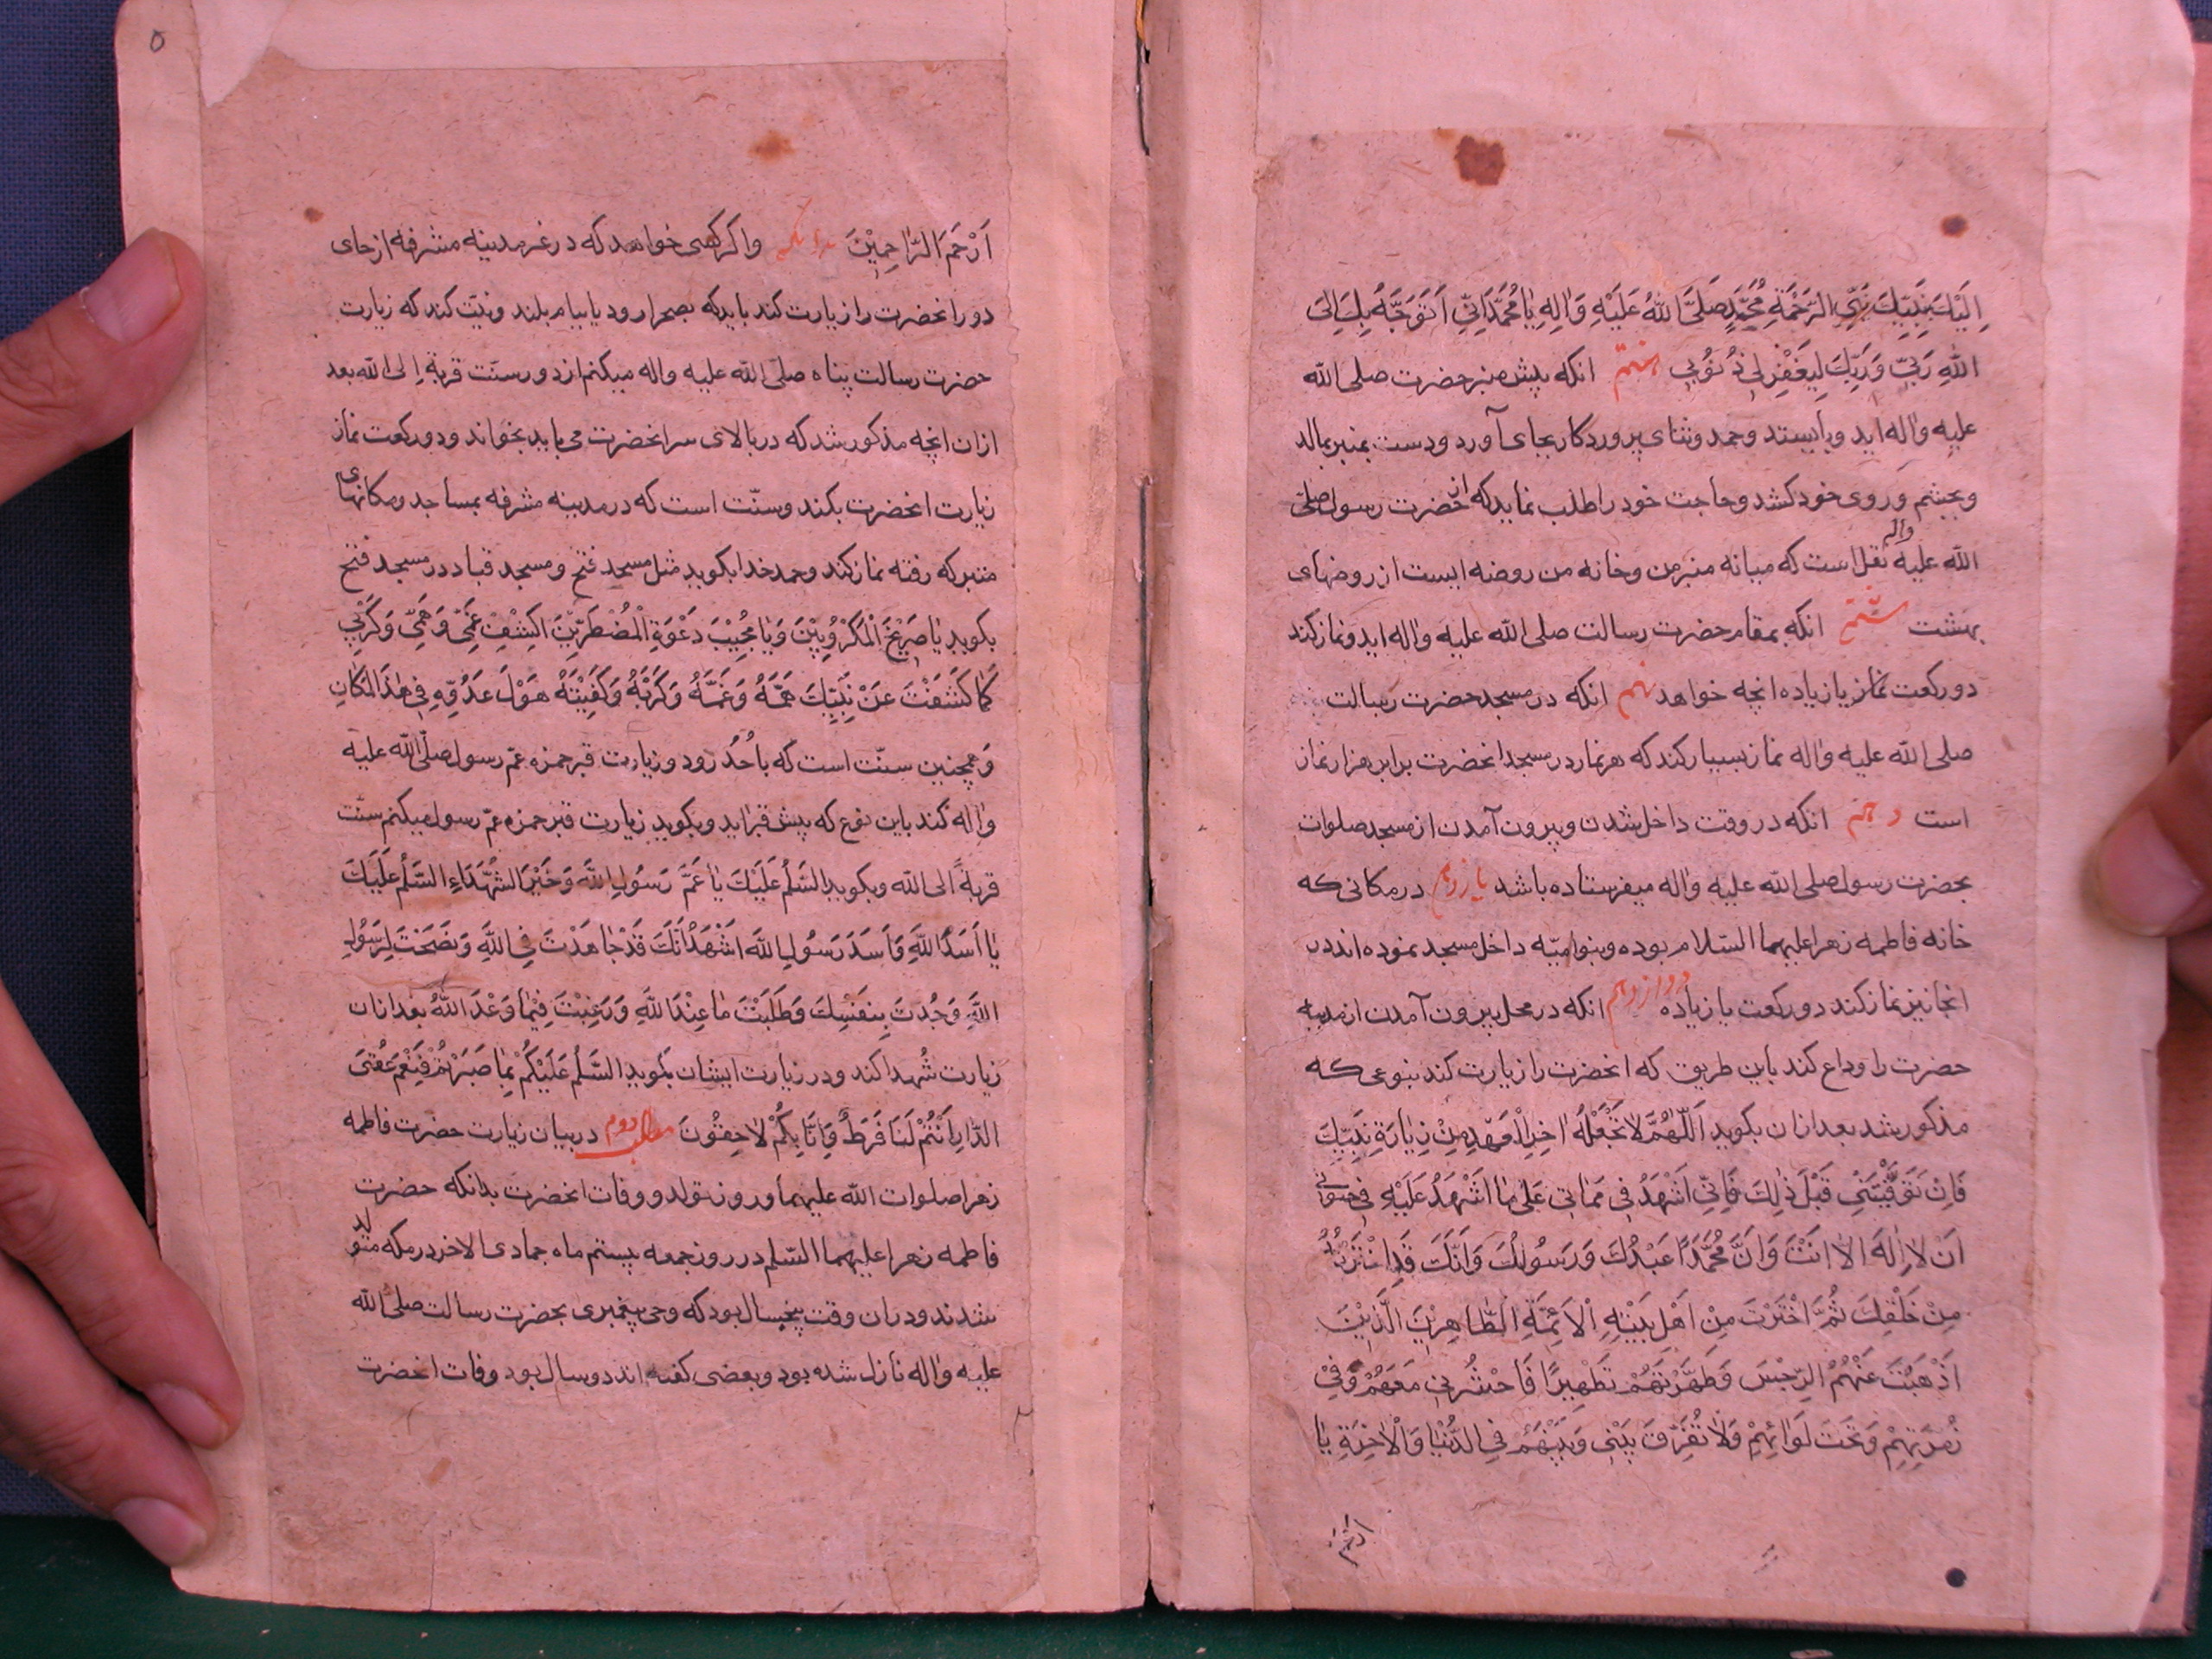 اِلَيْكَ بِنَبِيِّكَ نَبِيِّ الرَّحْمَةِ مُحَمَّدٍ صَلَّى اللهُ عَلَيْهِ وَاٰلِهِ يٰا مُحَمَّدُ اِنِّي اَتَوَجَّهُ بِكَ اِلَى
اللهِ رَبِّي وَرَبِّكَ لِيَغْفِرَ لِي ذُنُوبِي هفتم انكه پيش منبر حضرت صلى الله
عليه واله ايد وبايستد وحمد وثناى پروردكار بجاى آورد ودست بمنبر بمالد
وبچشم وروى خود كشد وحاجت خود را طلب نمايد كه از حضرت رسول صلى
الله عليه واله نقل است كه ميانه منبر من وخانه من روضه ايست از روضهاى
بهشت هشتم انكه بمقام حضرت رسالت صلى الله عليه واله ايد ونماز كند
دو ركعت نماز يا زياده انچه خواهد نهم انكه در مسجد حضرت رسالت
صلى الله عليه واله نماز بسيار كند كه هر نماز در مسجد انحضرت برابر هزار نماز
است دهم انكه در وقت داخل شدن وبيرون آمدن از مسجد صلوات
بحضرت رسول صلى الله عليه واله ميفرستاده باشد يازدهم در مكانى كه
خانه فاطمه زهرا عليهما السلام بوده وبنواميّه داخل مسجد نموده اند در
انجا نيز نماز كند دو ركعت يا زياده دوازدهم انكه در محل بيرون آمدن از مدينه
حضرت را وداع كند باين طريق كه انحضرت را زيارت كند بنوعى كه
مذكور شد بعد ازان بكويد اَللّٰهُمَّ لاٰ تَجْعَلْهُ اٰخِرَ الْعَهْدِ مِنْ زِيٰارَةِ نَبِيِّكَ
فَاِنْ تَوَفَّيْتَنِي قَبْلَ ذٰلِكَ فَاِنِّي اَشْهَدُ فِي مَمٰاتِي عَلىٰ مٰا اَشْهَدُ عَلَيْهِ فِي حَيٰوتِي
اَنْ لاٰ اِلٰهَ اِلاّٰ اَنْتَ وَاَنَّ مُحَمَّدًا عَبْدُكَ وَرَسُولُكَ وَاَنَّكَ قَدِ اخْتَرْتَهُ
مِنْ خَلْقِكَ ثُمَّ اخْتَرْتَ مِنْ اَهْلِ بَيْتِهِ الْاَئِمَّةَ الطّٰاهِرِيْنَ الَّذِيْنَ
اَذْهَبْتَ عَنْهُمُ الرِّجْسَ وَطَهَّرْتَهُمْ تَطْهِيرًا فَاحْشُرْنِي مَعَهُمْ وَفِيْ
زُمْرَتِهِمْ وَتَحْتَ لَوٰائِهِمْ وَلاٰ تُفَرِّقْ بَيْنِي وَبَيْنَهُمْ فِي الدُّنْيٰا وَالْاٰخِرَةِ يٰا
ارحم
٥
اَرْحَمَ الرّٰاحِمِيْنَ بدانكه واكر كسى خواهد كه در غير مدينه مشرفه از جاى
دور انحضرت را زيارت كند بايد كه بصحرا رود يا ببام بلند ونيّت كند كه زيارت
حضرت رسالت پناه صلى الله عليه واله ميكنم از دور سنّت قربة الى الله بعد
ازان انچه مذكور شد كه در بالاى سر انحضرت مى بايد بخواند ودو ركعت نماز
زيارت انحضرت بكند وسنّت است كه در مدينه مشرفه بمساجد ومكانهاى
متبركه رفته نماز كند وحمد خدا بكويد مثل مسجد فتح ومسجد قبا ودر مسجد فتح
بكويد يٰا صَرِيْخَ الْمَكْرُوبِيْنَ وَيٰا مُجِيْبَ دَعْوَةِ الْمُضْطَرِّيْنَ اكْشِفْ غَمِّي وَهَمِّي وَكَرْبِي
كَمٰا كَشَفْتَ عَنْ نَبِيِّكَ هَمَّهُ وَغَمَّهُ وَكَرْبَهُ وَكَفَيْتَهُ هَوْلَ عَدُوِّهِ فِي هٰذَا الْمَكٰانِ
وهمچنين سنّت است كه باُحُد رود وزيارت قبر حمزه عمّ رسول صلّى الله عليه
واله كند باين نوع كه پيش قبر ايد وبكويد زيارت قبر حمزه عمّ رسول ميكنم سنّت
قربةً الى الله وبكويد السَّلٰمُ عَلَيْكَ يٰا عَمَّ رَسُولِ اللهِ وَخَيْرَ الشُّهَدٰاءِ السَّلٰمُ عَلَيْكَ
يٰا اَسَدَ اللهِ وَاَسَدَ رَسُولِ اللهِ اَشْهَدُ اَنَّكَ قَدْ جٰاهَدْتَ فِي اللهِ وَنَصَحْتَ لِرَسُولِ
اللهِ وَجُدْتَ بِنَفْسِكَ وَطَلَبْتَ مٰا عِنْدَ اللهِ وَرَغِبْتَ فِيْمٰا وَعَدَ اللهُ بعد ازان
زيارت شُهدا كند ودر زيارت ايشان بكويد السَّلٰمُ عَلَيْكُمْ بِمٰا صَبَرْتُمْ فَنِعْمَ عُقْبَى
الدّٰارِ اَنْتُمْ لَنٰا فَرَطٌ وَاِنّٰا بِكُمْ لاٰحِقُونَ مطلب دوم در بيان زيارت حضرت فاطمه
زهرا صلوات الله عليهما وروز تولد ووفات انحضرت بدانكه حضرت
فاطمه زهرا عليهما السّلم در روز جمعه بيستم ماه جمادى الاخر در مكه متولد
شدند ودران وقت پنجسال بود كه وحى پيغمبرى بحضرت رسالت صلى الله
عليه واله نازل شده بود وبعضى كفته اند دو سال بود وفات انحضرت